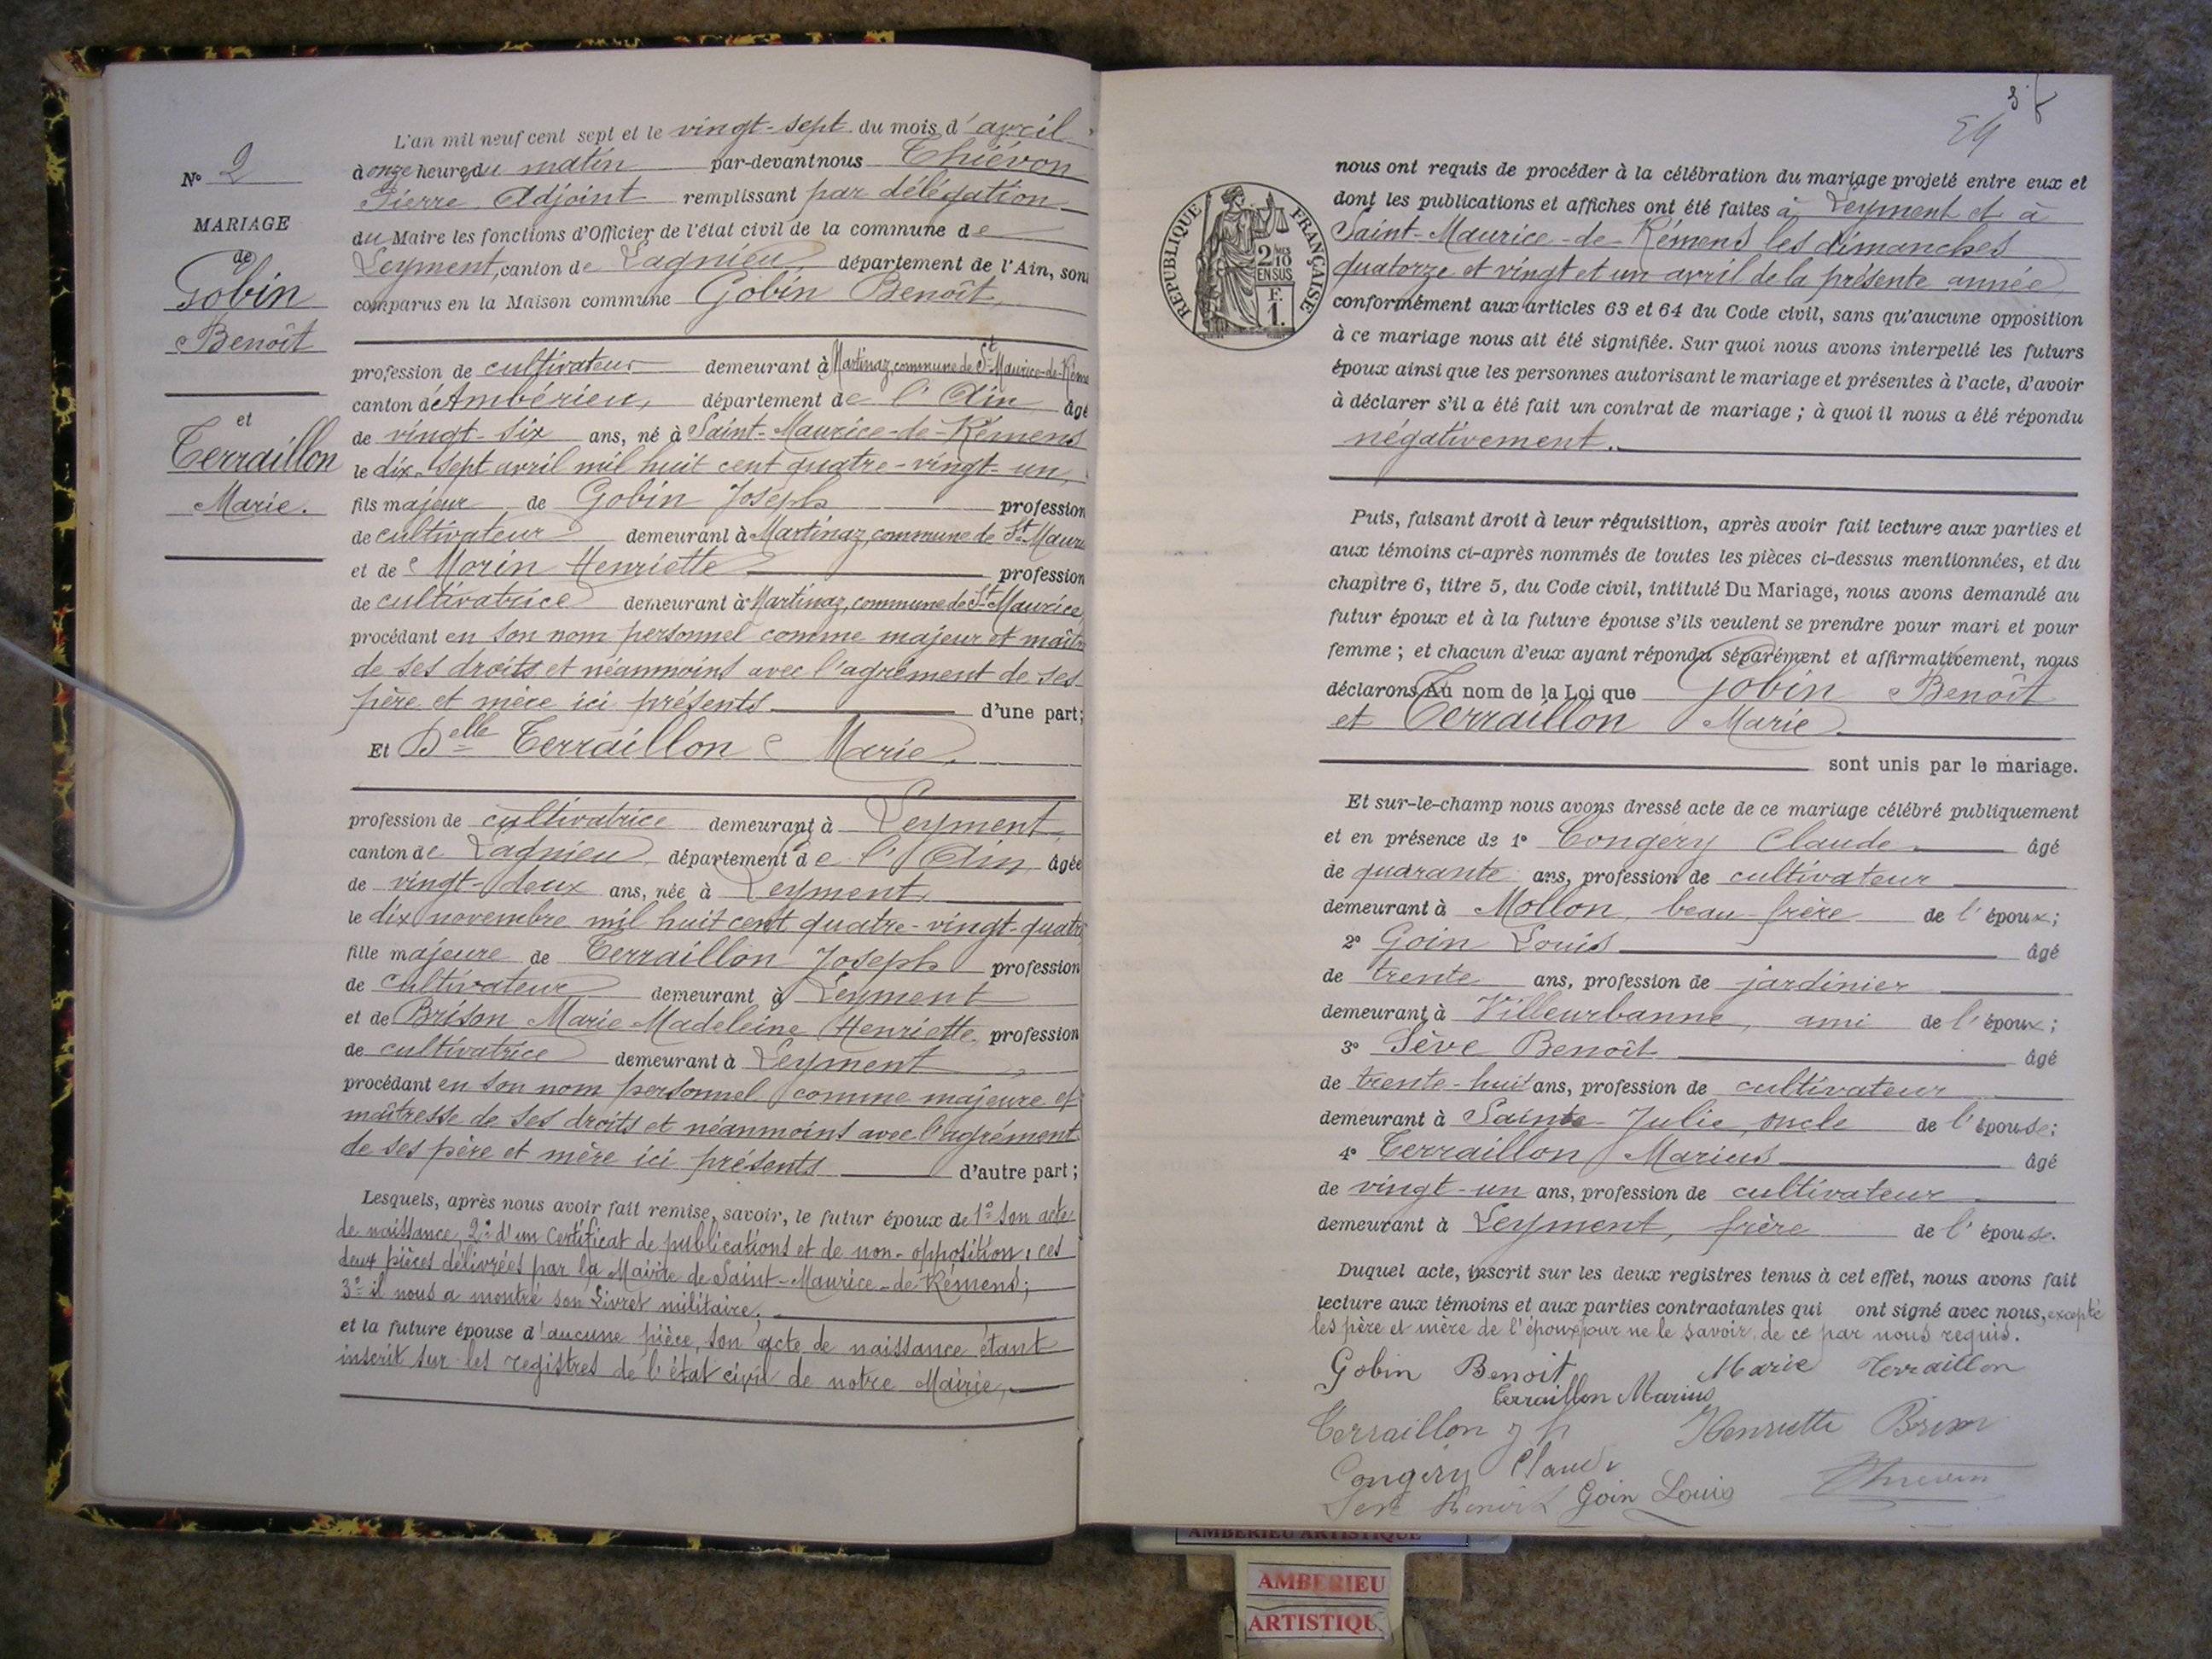 L'an mil neuf cent sept et le vingt-sept du mois d'avril
N° 2
à onze heures du matin par-devant nous Thiévon
Pierre Adjoint remplissant par délégation
du Maire les fonctions d'Officier de l'état civil de la commune de
Leyment, canton de Lagnieu département de l'Ain, sont
comparus en la Maison commune Gobin Benoît
MARIAGE
de
Gobin
Benoît
et
Terraillon
Marie.
profession de cultivateur demeurant à Martinaz, commune de St-Maurice-de-Rémens
canton d'Ambérieu, département de l'Ain âgé
de vingt-six ans, né à Saint-Maurice-de-Rémens
le dix-sept avril mil huit cent quatre-vingt-un,
fils majeur de Gobin Joseph profession
de cultivateur demeurant à Martinaz, commune de St-Maurice
et de Morin Henriette profession
de cultivatrice demeurant à Martinaz, commune de St-Maurice,
procédant en son nom personnel comme majeur et maître
de ses droits et néanmoins avec l'agrément de ses
père et mère ici présents d'une part;
Et Delle Terraillon Marie.
profession de cultivatrice demeurant à Leyment,
canton de Lagnieu, département de l'Ain âgée
de vingt-deux ans, née à Leyment,
le dix novembre mil huit cent quatre-vingt-quatre
fille majeure de Terraillon Joseph profession
de cultivateur demeurant à Leyment
et de Brison Marie Madeleine Henriette, profession
de cultivatrice demeurant à Leyment,
procédant en son nom personnel comme majeure et
maîtresse de ses droits et néanmoins avec l'agrément
de ses père et mère ici présents d'autre part;
Lesquels, après nous avoir fait remise, savoir, le futur époux de 1° son acte
de naissance, 2° d'un certificat de publications et de non-opposition; ces
deux pièces délivrées par la Mairie de Saint-Maurice-de-Rémens;
3° il nous a montré son Livret militaire;
et la future épouse d'aucune pièce, son acte de naissance étant
inscrit sur les registres de l'état civil de notre Mairie,
nous ont requis de procéder à la célébration du mariage projeté entre eux et
dont les publications et affiches ont été faites à Leyment et à
Saint-Maurice-de-Rémens les dimanches
quatorze et vingt et un avril de la présente année
conformément aux articles 63 et 64 du Code civil, sans qu'aucune opposition
à ce mariage nous ait été signifiée. Sur quoi nous avons interpellé les futurs
époux ainsi que les personnes autorisant le mariage et présentes à l'acte, d'avoir
à déclarer s'il a été fait un contrat de mariage; à quoi il nous a été répondu
négativement.
RÉPUBLIQUE FRANÇAISE
2/10 EN SUS
F.
1.
Puis, faisant droit à leur réquisition, après avoir fait lecture aux parties et
aux témoins ci-après nommés de toutes les pièces ci-dessus mentionnées, et du
chapitre 6, titre 5, du Code civil, intitulé Du Mariage, nous avons demandé au
futur époux et à la future épouse s'ils veulent se prendre pour mari et pour
femme; et chacun d'eux ayant répondu séparément et affirmativement, nous
déclarons Au nom de la Loi que Gobin Benoît
et Terraillon Marie
sont unis par le mariage.
Et sur-le-champ nous avons dressé acte de ce mariage célébré publiquement
et en présence de 1° Congery Claude âgé
de quarante ans, profession de cultivateur
demeurant à Mollon, beau-frère de l'époux;
2° Goin Louis âgé
de trente ans, profession de jardinier
demeurant à Villeurbanne, ami de l'époux;
3° Sève Benoît âgé
de trente-huit ans, profession de cultivateur
demeurant à Sainte-Julie, oncle de l'épouse;
4° Terraillon Marius âgé
de vingt-un ans, profession de cultivateur
demeurant à Leyment, frère de l'épouse.
Duquel acte, inscrit sur les deux registres tenus à cet effet, nous avons fait
lecture aux témoins et aux parties contractantes qui ont signé avec nous, excepté
les père et mère de l'époux pour ne le savoir, de ce par nous requis.
Gobin Benoit Marie Terraillon
Terraillon Marius
Terraillon Henriette
Congery Claude
Goin Louis
AMBERIEU ARTISTIQUE
AMBERIEU
ARTISTIQU